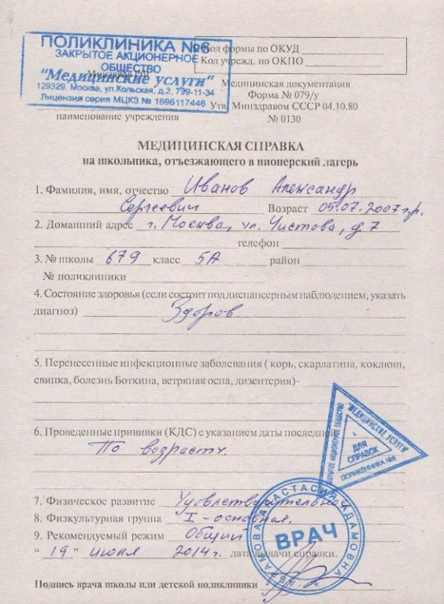 ПОЛИКЛИНИКА №6
ЗАКРЫТОЕ АКЦИОНЕРНОЕ
ОБЩЕСТВО
"Медицинские услуги"
129329, Москва, ул.Кольская, д.2, 799-11-34
Лицензия серия МЦКЗ № 1696117446
наименование учреждения
Код формы по ОКУД
Код учрежд. по ОКПО
Медицинская документация
Форма № 079/у
Утв. Минздравом СССР 04.10.80
№ 0130
МЕДИЦИНСКАЯ СПРАВКА
на школьника, отъезжающего в пионерский лагерь
1. Фамилия, имя, отчество Иванов Александр
Сергеевич Возраст 05.07.2007 г.р.
2. Домашний адрес г. Москва, ул. Чистова, д. 7
телефон
3. № школы 679 класс 5А район
№ поликлиники
4. Состояние здоровья (если состоит под диспансерным наблюдением, указать
диагноз) Здоров
5. Перенесенные инфекционные заболевания ( корь, скарлатина, коклюш,
свинка, болезнь Боткина, ветряная оспа, дизентерия)-
6. Проведенные прививки (КДС) с указанием даты последней
По возрасту.
7. Физическое развитие Удовлетворительное
8. Физкультурная группа I - основная.
9. Рекомендуемый режим Общий
" 19 " июля 2014 г. дата выдачи справки.
Подпись врача школы или детской поликлиники
"МЕДИЦИНСКИЕ УСЛУГИ"
ЗАКРЫТОЕ АКЦИОНЕРНОЕ ОБЩЕСТВО
ДЛЯ
СПРАВОК
ПОЛИКЛИНИКА №6
ВРАЧ
АНАСТАСИЯ АДАМОВНА